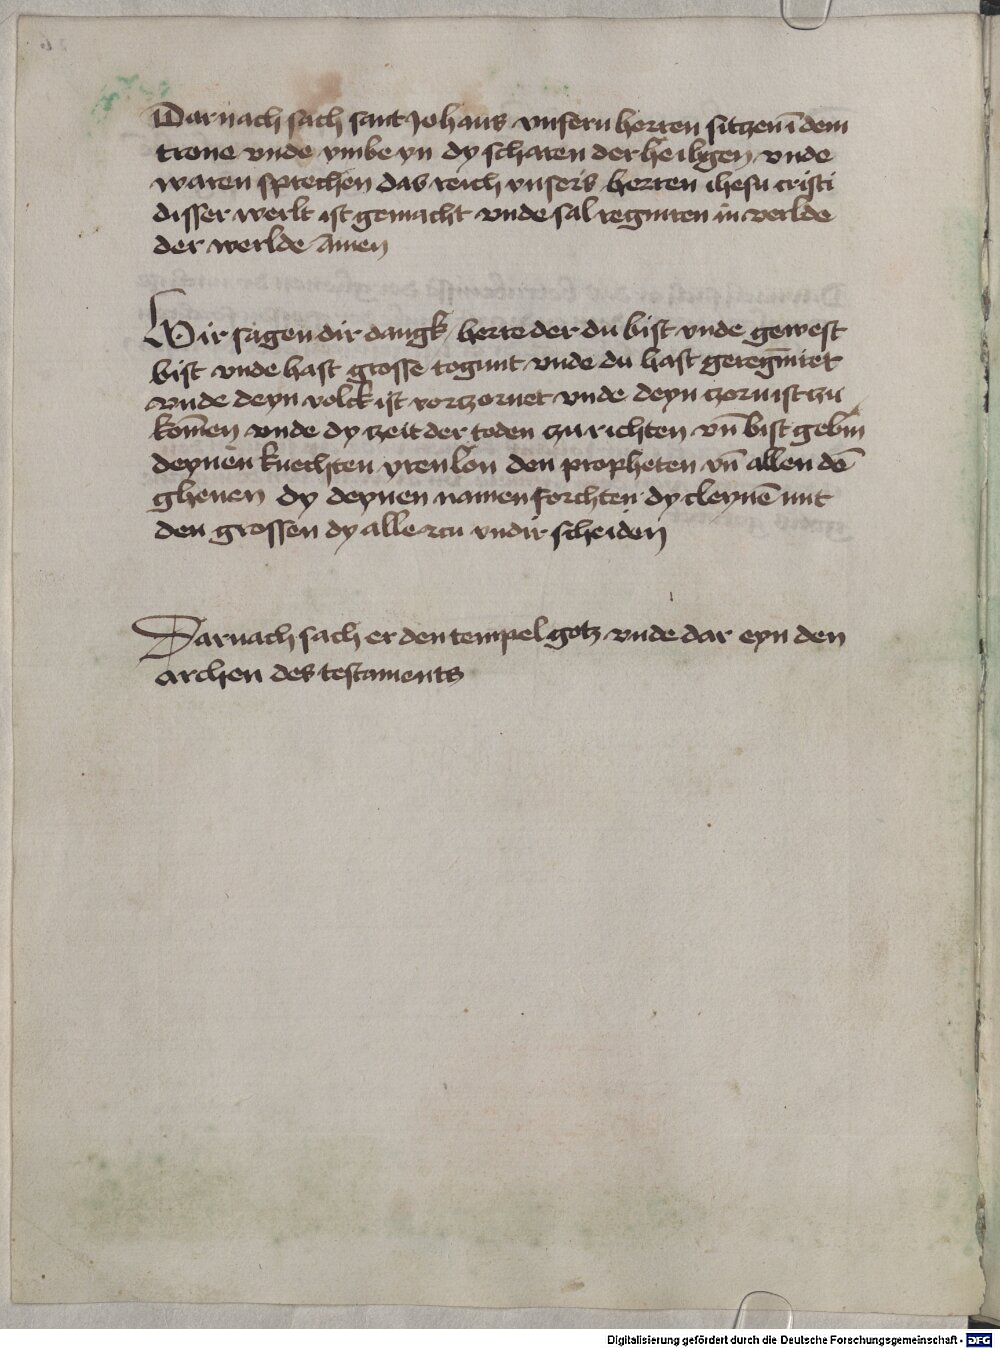 Darnach sach sant Johans vnsern herren sitzen ī dem
trone vnde vmbe yn dy scharen der heiligen vnde
waren sprechen das reich vnsers herren ihesu cristi
disser werlt ist gemacht vnde sal regniren in werlde
der werlde amen
Wir sagen dir dangk herre der du bist vnde gewest
bist vnde hast grosse togunt vnde du hast geregnīret
vnde deyn volck ist vorczornet vnde deyn czorn ist czu
komēn vnde dy czeit der toden czu richten vn̄ bist
deynen knechten yren lon den propheten vn̄ allen dē
ghenen dy deynen namen forchten dy cleynē mit
den grossen dy alle vndir scheiden
Darnach sach er den tempel gotz vnde dar eyn den
archen des testaments
Digitalisierung gefördert durch die Deutsche Forschungsgemeinschaft - DFG